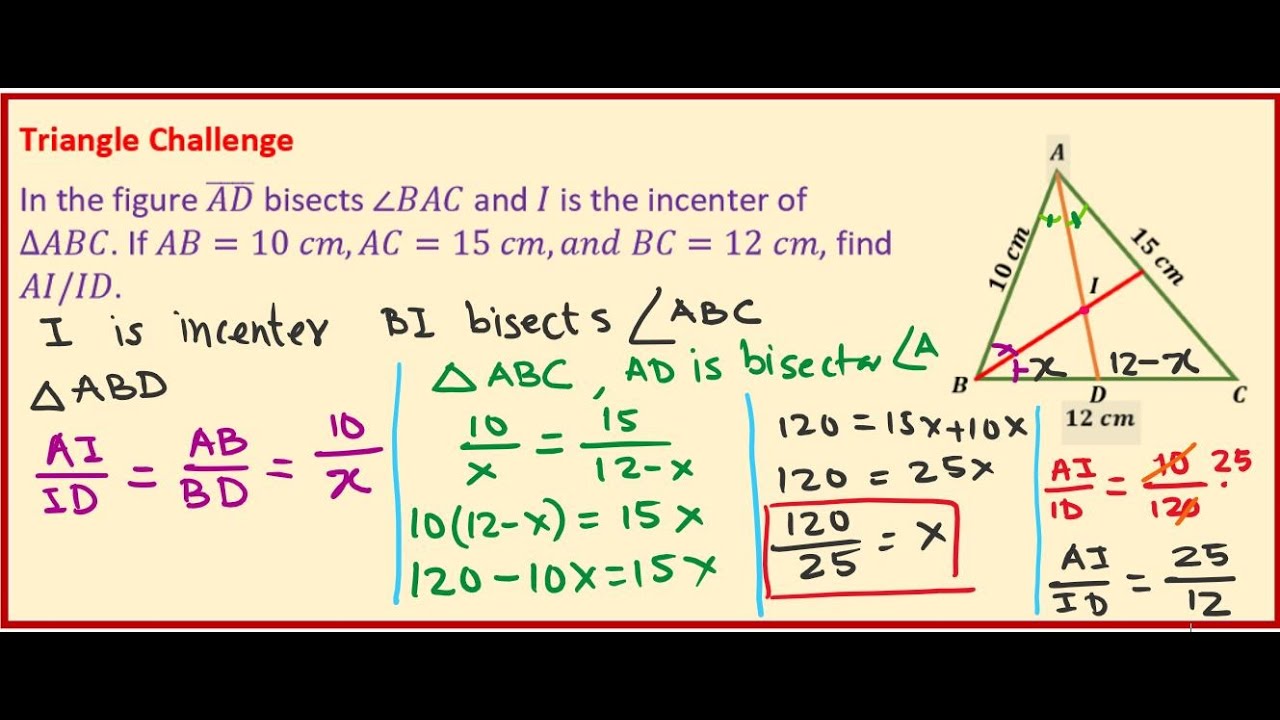 Triangle Challenge
In the figure A̅D̅ bisects ∠BAC and I is the incenter of
ΔABC. If AB = 10 cm, AC = 15 cm, and BC = 12 cm, find
AI/ID.
I is incenter BI bisects ∠ABC
△ ABD
AI/ID = AB/BD = 10/x
△ ABC, AD is bisector ∠A
10/x = 15/12-x
10(12-x) = 15x
120-10x=15x
120 = 15x+10x
120 = 25x
120/25 = x
AI/ID = 10/120 · 25
AI/ID = 25/12
A
10 cm
15 cm
I
x
x
B
x
12-x
D
C
12 cm